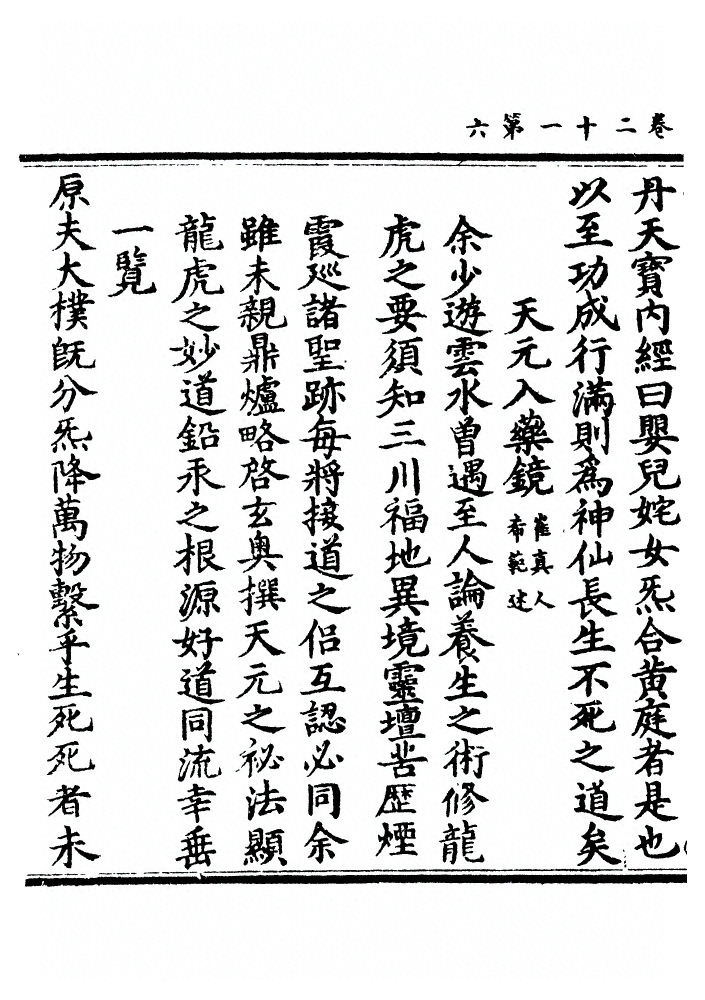 卷二十一第六
丹天寶內經曰嬰兒姹女炁合黃庭者是也
以至功成行滿則爲神仙長生不死之道矣
天元入藥鏡 崔真人希範述
余少遊雲水曾遇至人論養生之術修龍
虎之要須知三川福地異境靈壇苦歷煙
霞巡諸聖跡每將接道之侶互認必同余
雖未親鼎爐略啓玄奧撰天元之祕法顯
龍虎之妙道鉛汞之根源好道同流幸垂
一覽
原夫大樸旣分炁降萬物繫乎生死死者未